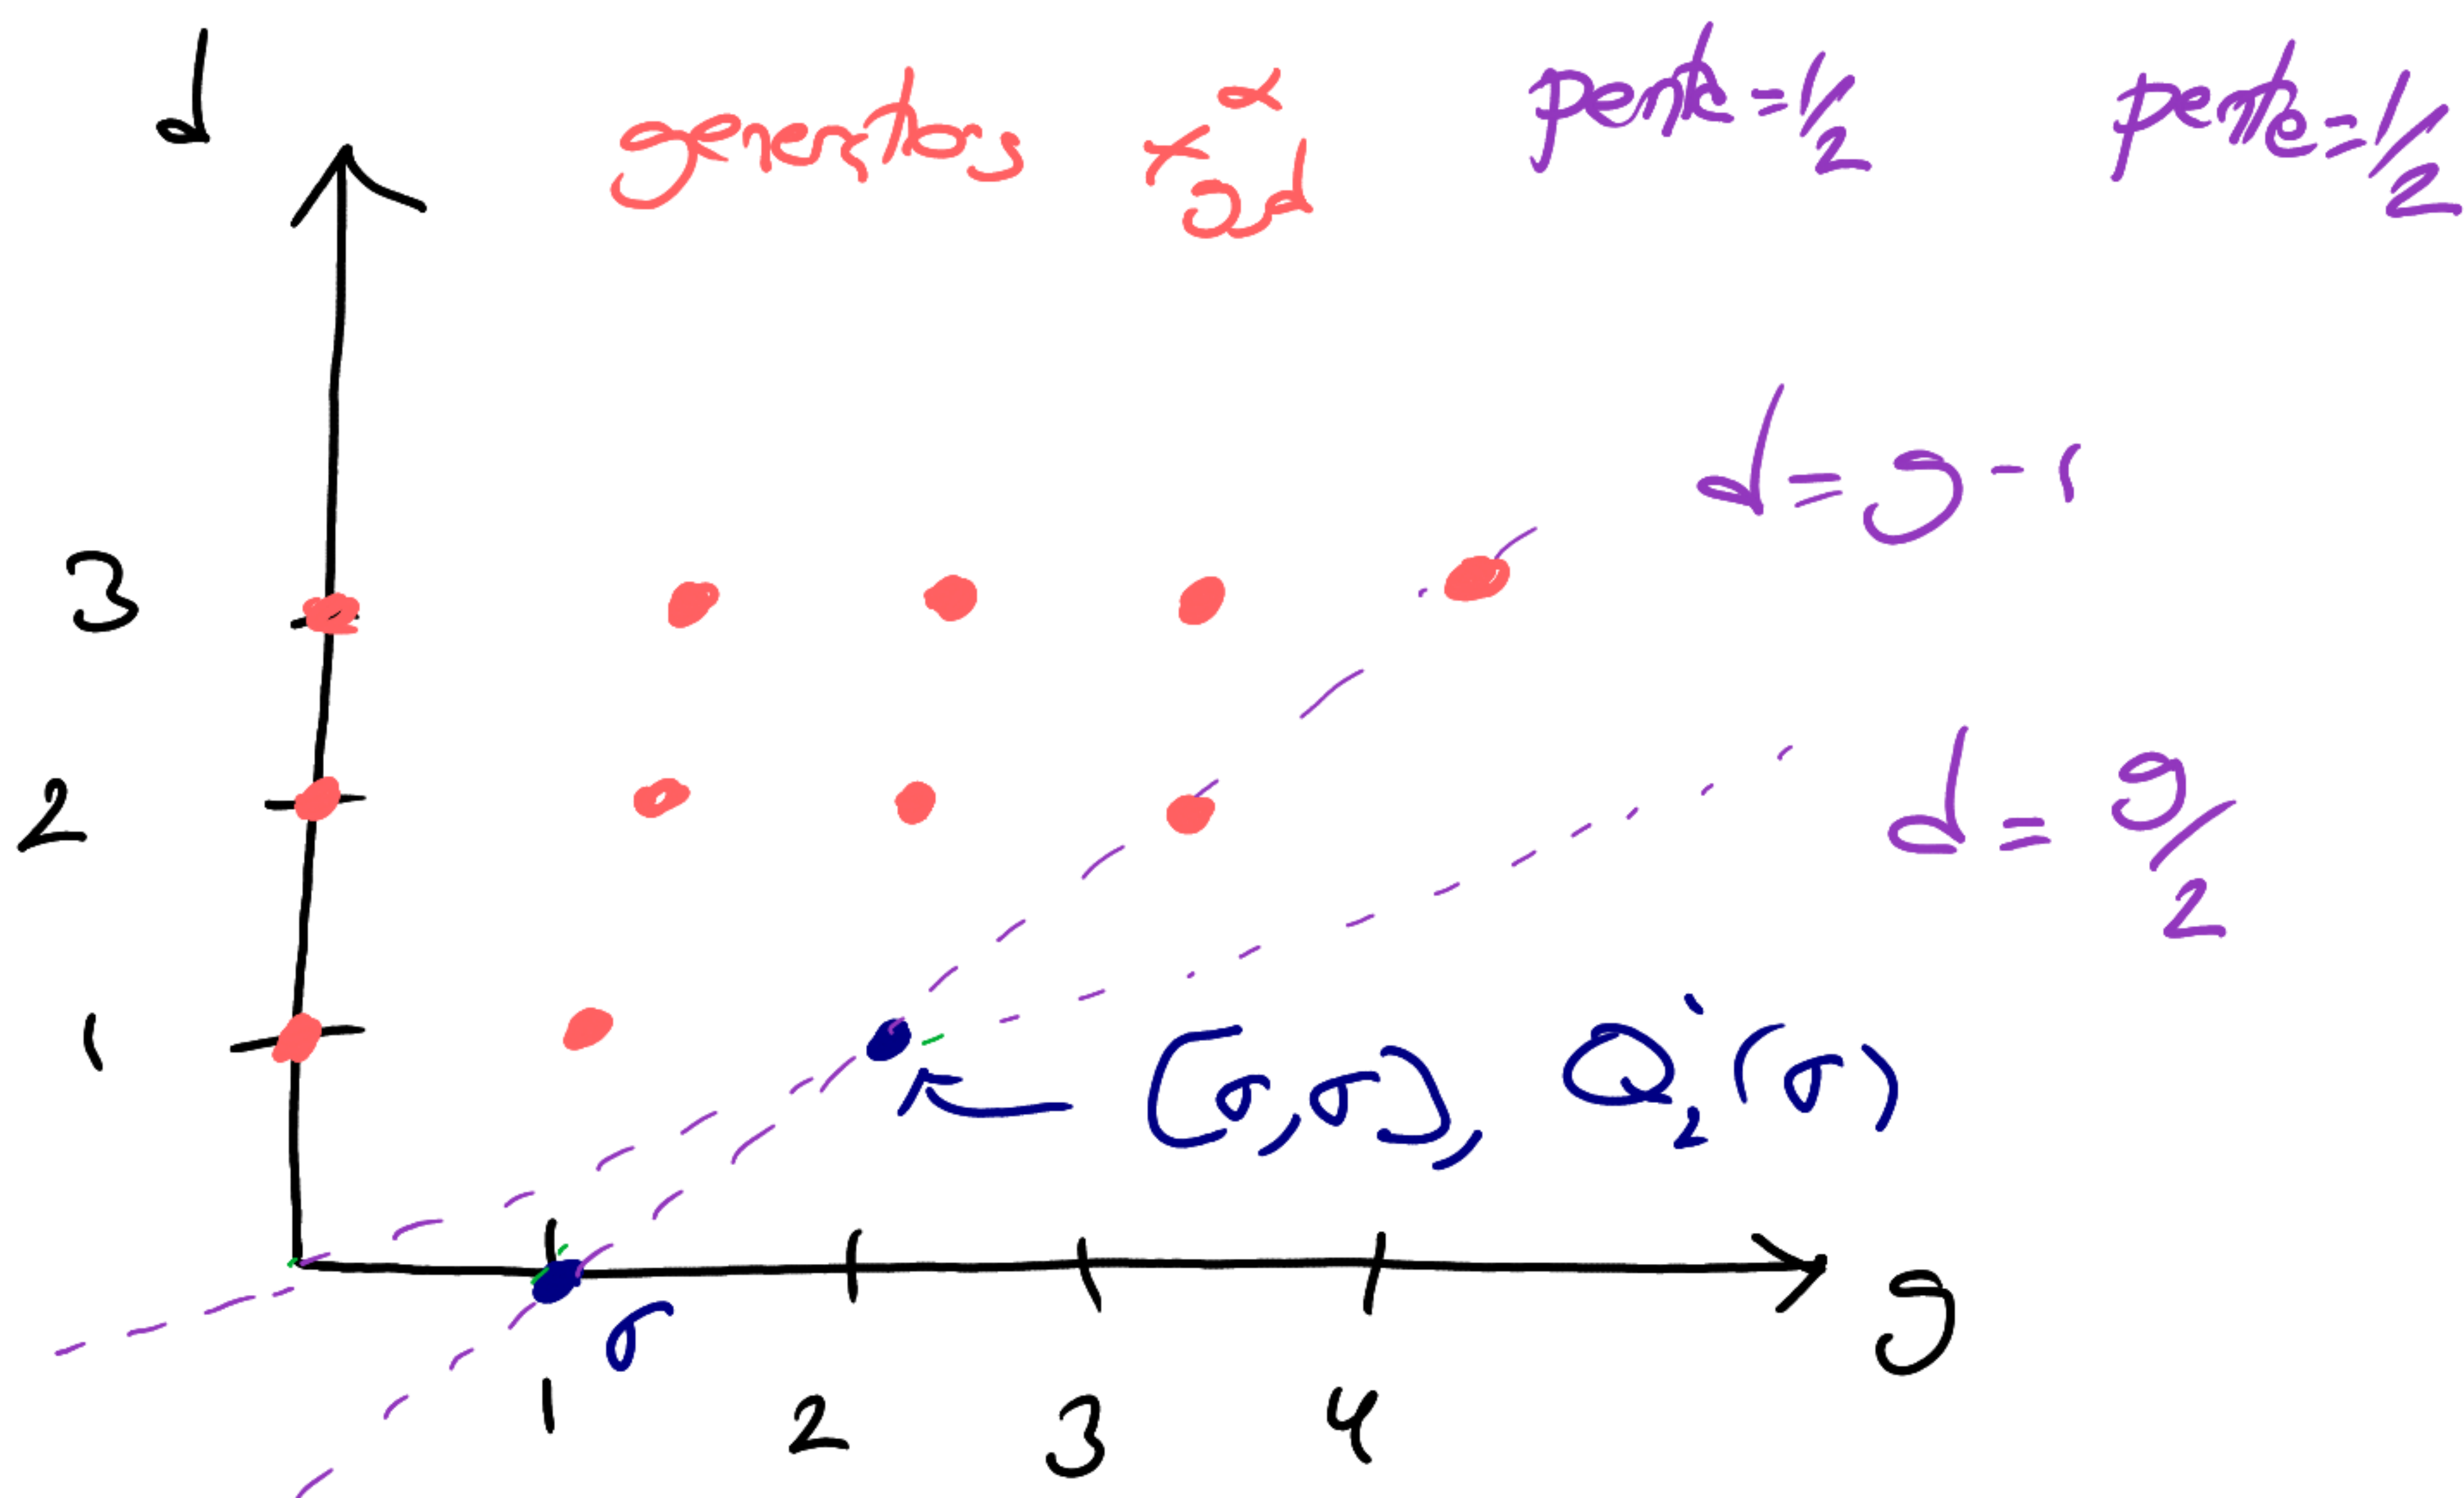 d
generators x_{g,d}^α
pente = 1/2
pente = 1/2
d = g - 1
3
2
d = g/2
1
[σ,σ], Q_2^1(σ)
σ
g
1 2 3 4